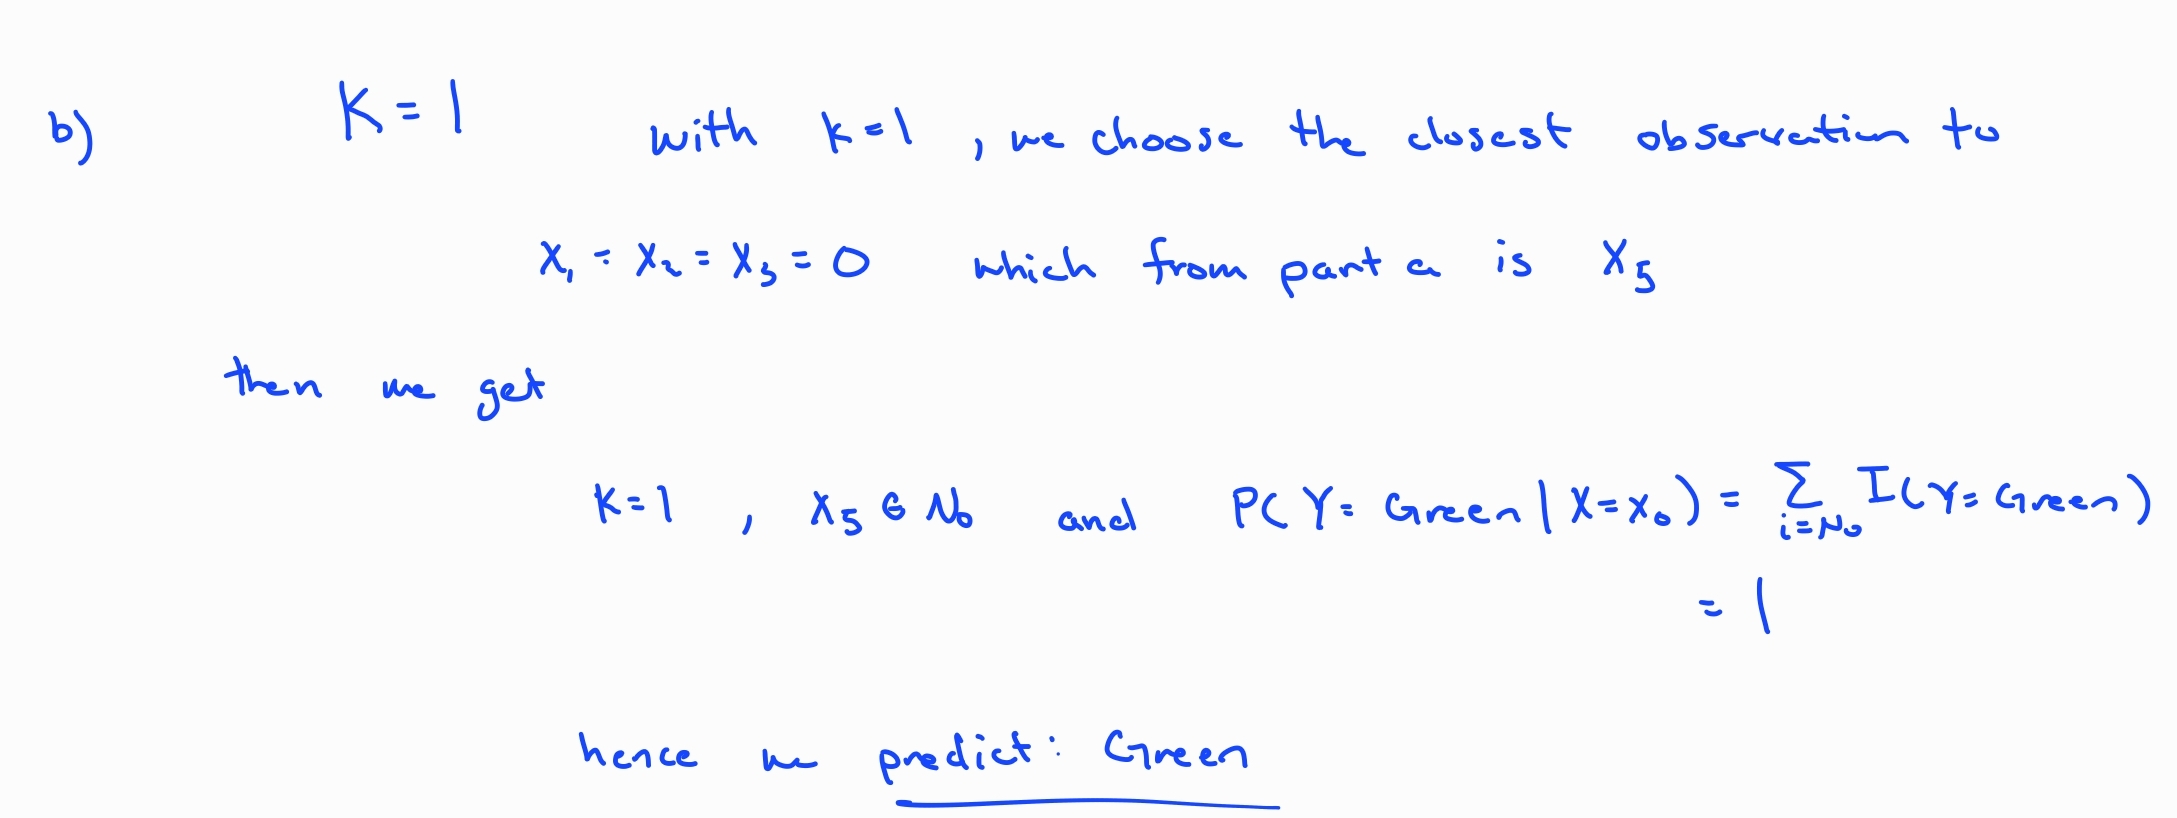 b) K = 1 with k=1, we choose the closest observation to
X₁ = X₂ = X₃ = 0 which from part a is X₅
then we get
K=1, X₅ ∈ N₀ and P(Y= Green | X=x₀) = ∑ᵢ₌N₀ I(Y= Green)
= 1
hence we predict: Green